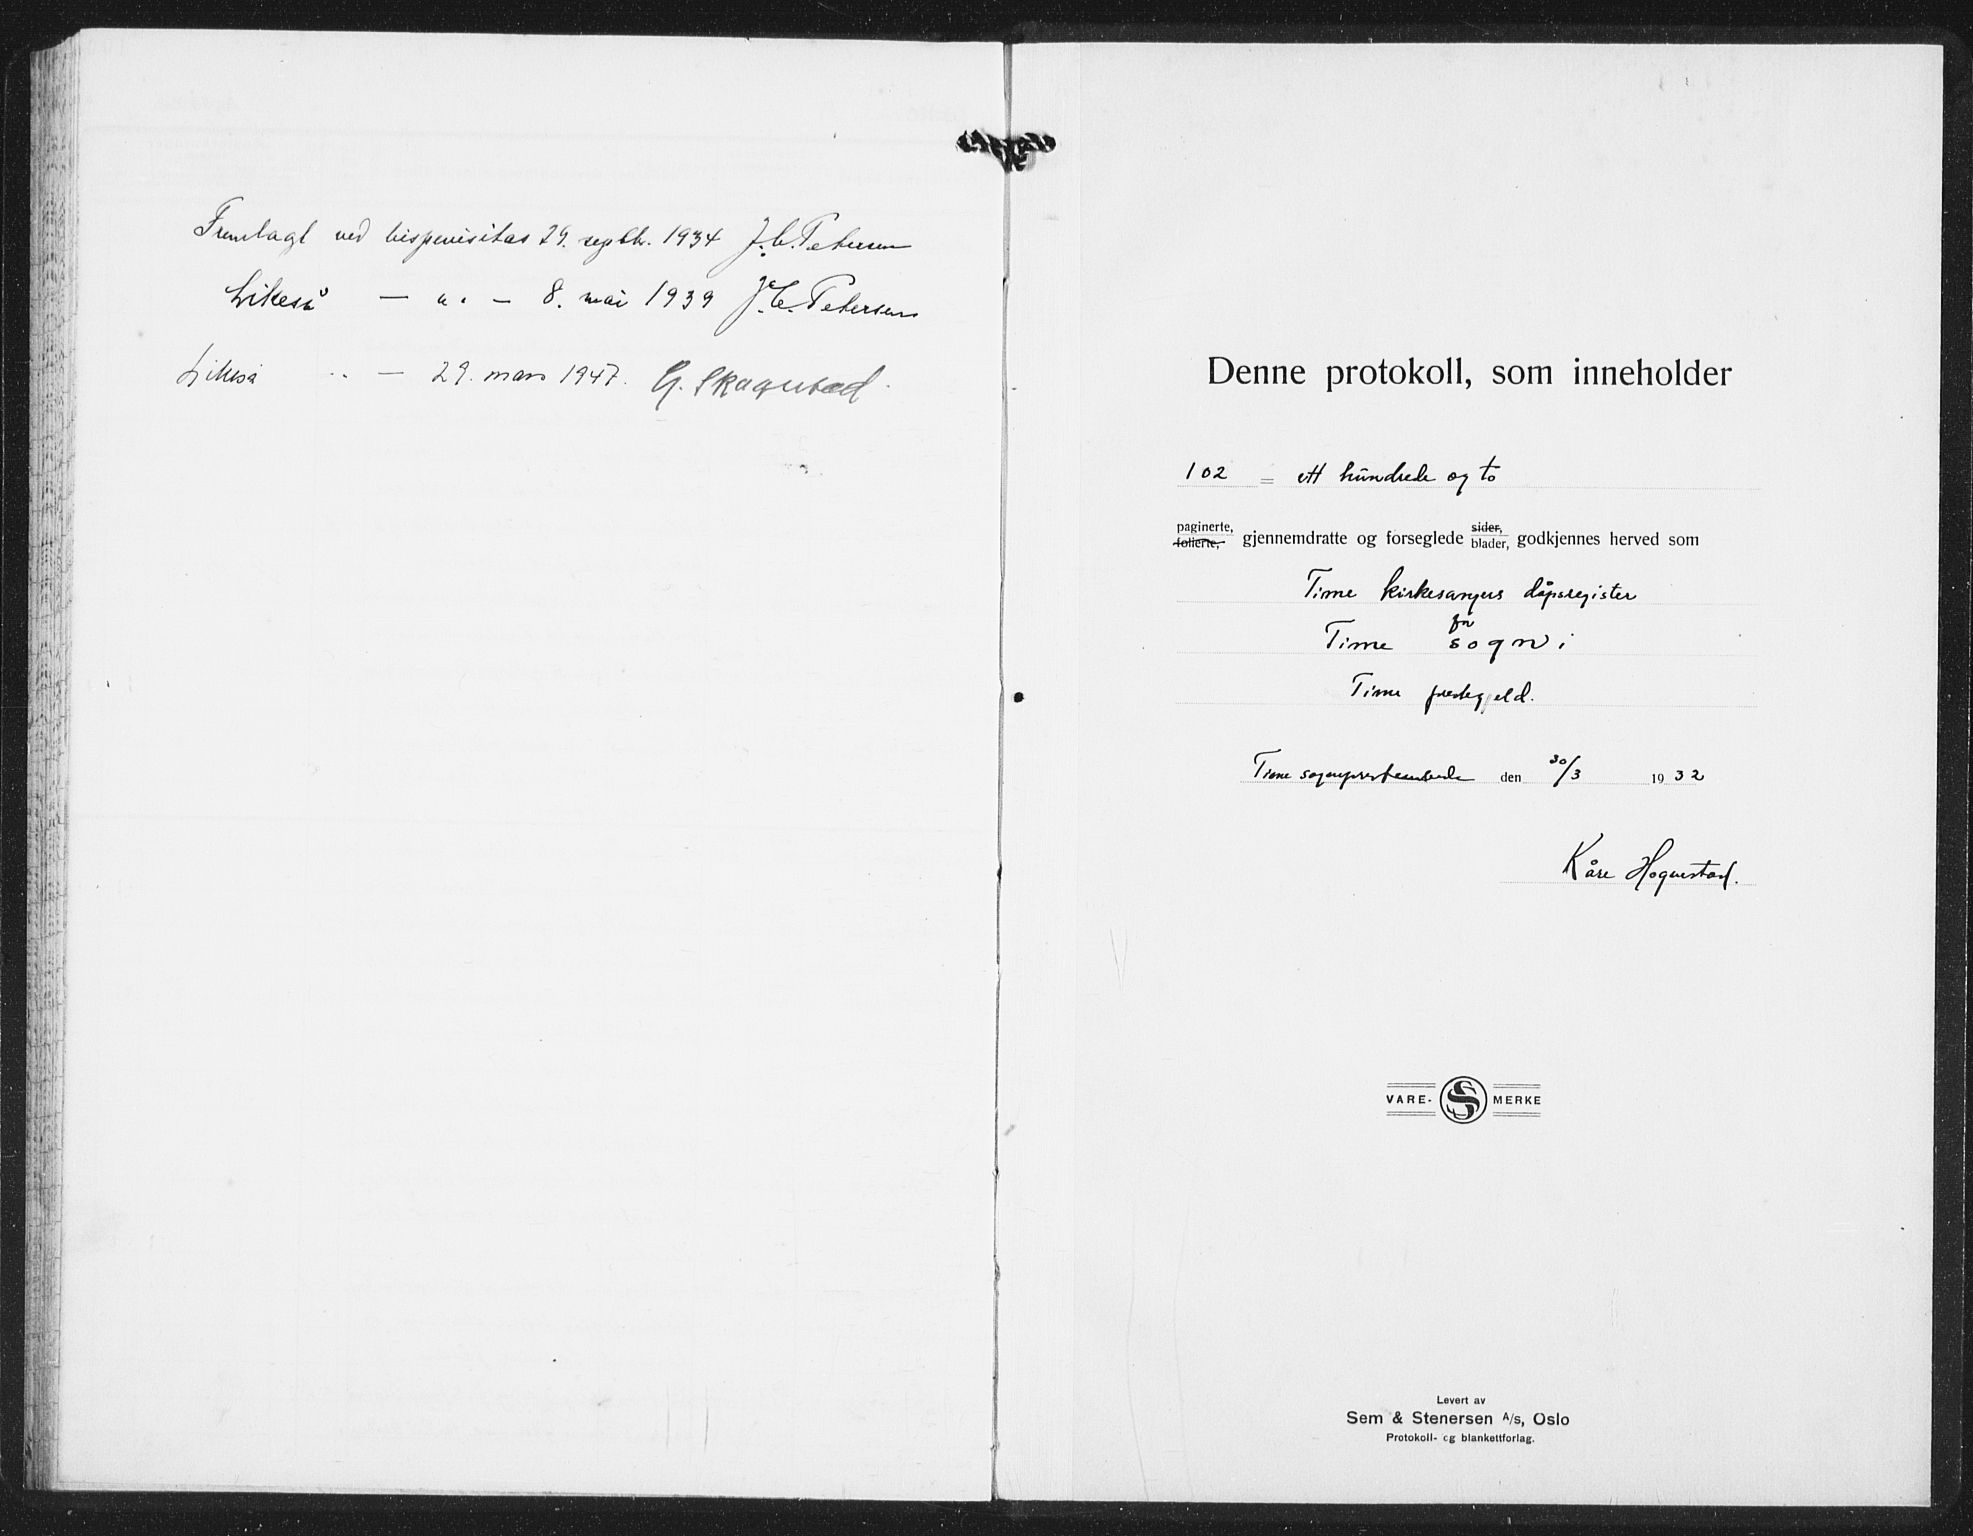 Fremlagt ved bispevisitas 29. septbr. 1934 J.C. Petersen
Likeså — „ . — 8. mai 1939 J.C. Petersen
Likeså . . — 29. mars 1947. G. Skagestad.
Denne protokoll, som inneholder
102 = ett hundrede og to
paginerte,
folierte, gjennemdratte og forseglede sider, blader, godkjennes herved som
Time kirkesangers dåpsregister
for
Time sogn i
Time prestegjeld.
Time sogneprestembede den 30/3 1932
Kåre Hognestad.
VARE- S MERKE
Levert av
Sem & Stenersen A/s, Oslo
Protokoll- og blankettforlag.